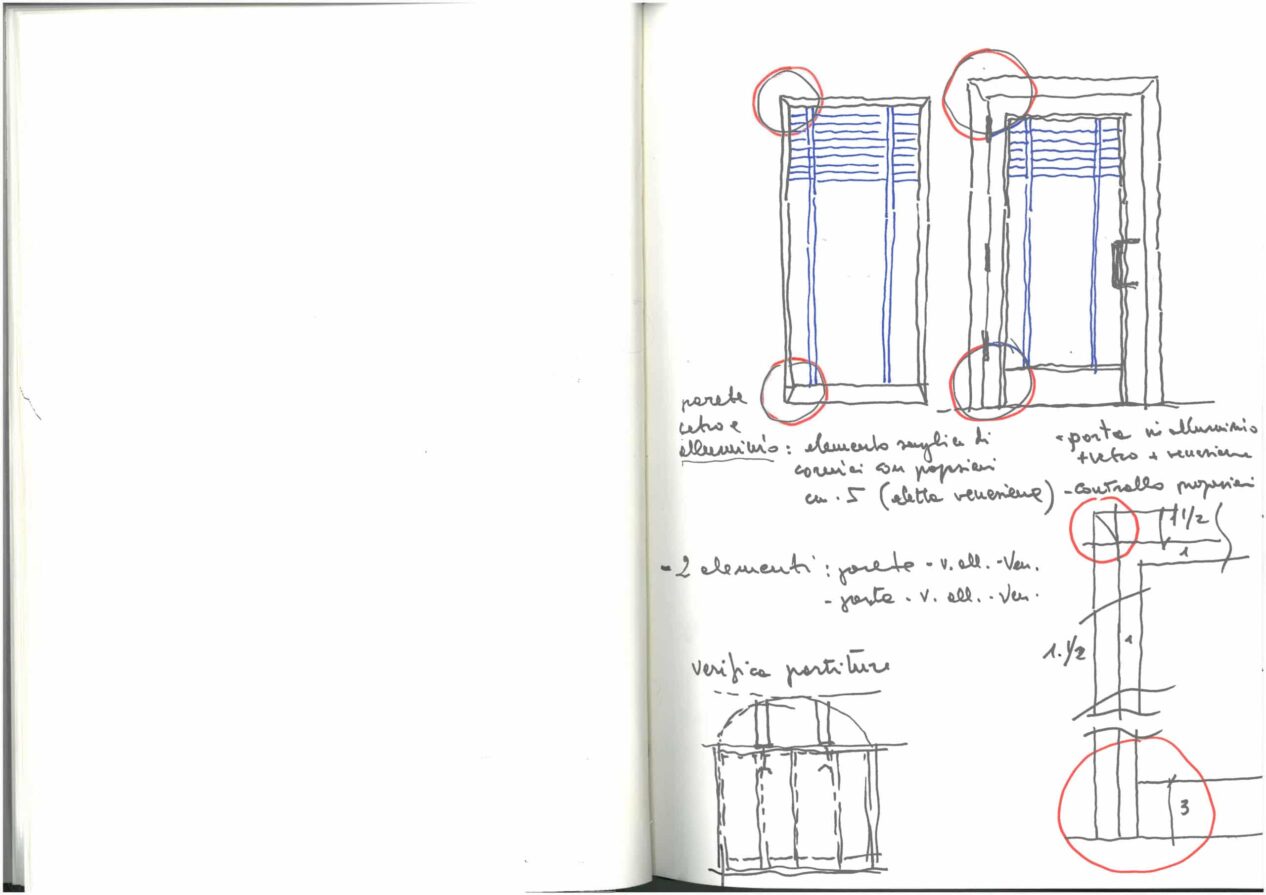 parete
vetro e
alluminio : elemento singlia di
cornici con proporzioni
cm. 5 (aletta veneziana)
- porta in alluminio
+ vetro + veneziane
- controllo proporzioni
1 1/2
1
- 2 elementi : parete - v. all. - Ven.
- porta - v. all. - Ven.
1. 1/2
1
verifica partiture
3